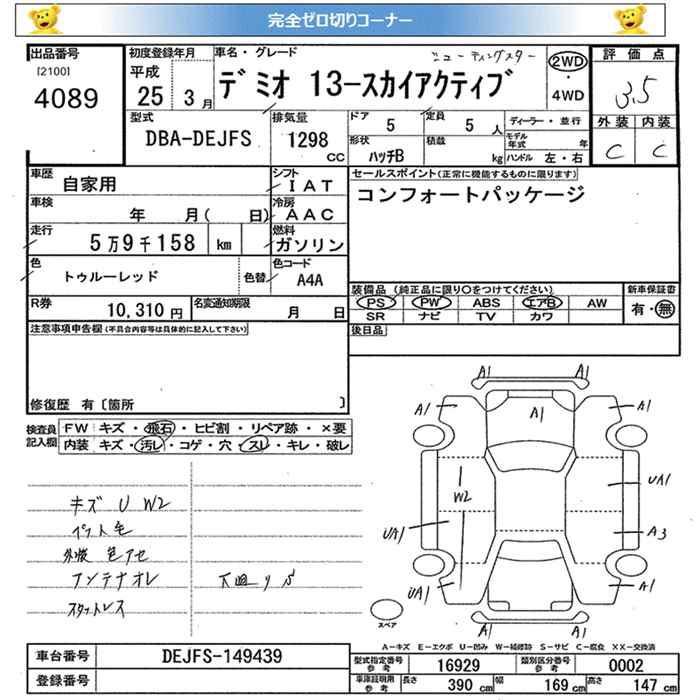 完全ゼロ切りコーナー
出品番号
[2100]
4089
初度登録年月
平成
25 3月
車名・グレード
ニューティングスター
デミオ 13-スカイアクティブ
2WD
・
4WD
評価点
3.5
外装 内装
C C
型式
DBA-DEJFS
排気量
1298
CC
ドア 5
定員 5 人
形状
ハッチB
積載 kg
ディーラー・並行
モデル年式 年
ハンドル 左・右
車歴
自家用
シフト
IAT
車検
年 月( 日)
冷房
AAC
走行
5万9千158 km
燃料
ガソリン
色
トゥルーレッド
色替
色コード
A4A
R券
10,310円
名変通知期限
月 日
セールスポイント(正常に機能するものに限ります)
コンフォートパッケージ
装備品(純正品に限り○をつけてください)
PS PW ABS エアB AW
SR ナビ TV カワ
新車保証書
有・無
後日品
注意事項申告欄(不具合内容等は具体的に記入して下さい)
修復歴 有〔箇所 〕
検査員記入欄
FW キズ・飛石・ヒビ割・リペア跡・×要
内装 キズ・汚レ・コゲ・穴・スレ・キレ・破レ
キズ U W2
ペット毛
外装 色アセ
アンテナオレ
スタットレス
下廻りサ
A1 A1
A1 A1 A1
W2 UA1
UA1 A3
UA1 A1
A1 A1
スペア
A-キズ E-エクボ U-凹み W-補修跡 S-サビ C-腐食 XX-交換済
車台番号 DEJFS-149439
登録番号
型式指定番号参考 16929 類別区分番号参考 0002
車庫証明用参考 長さ 390 cm 幅 169 cm 高さ 147 cm